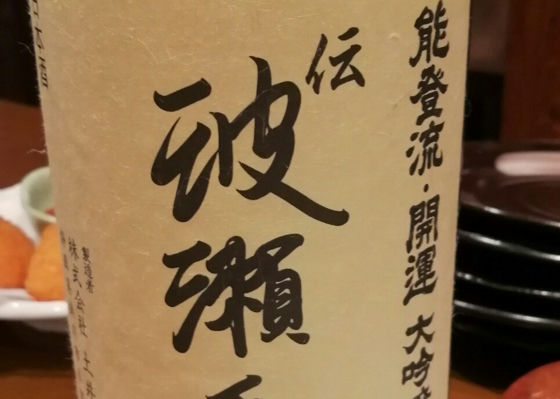 能登流・開運 大吟
伝
波瀬
製造者
株式会社 土井